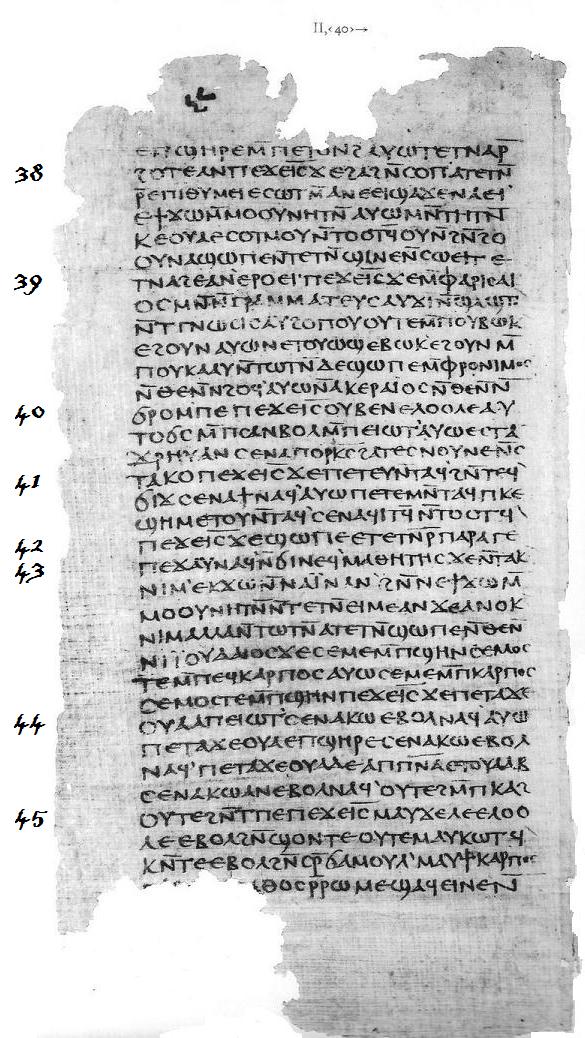 ⲉⲡϣⲏⲣⲉⲙⲡⲉⲧⲟⲛϩⲁⲩⲱⲧⲉⲧⲛⲁⲣ̅
ϩⲟⲧⲉⲁⲛⲡⲉϫⲉⲓ̅ⲥ̅ϫⲉϩⲁϩⲛ̅ⲥⲟⲡⲁⲧⲉⲧⲛ̅
ⲣ̅ⲉⲡⲓⲑⲩⲙⲉⲓⲉⲥⲱⲧⲙ̅ⲁⲛⲉⲉⲓϣⲁϫⲉⲛⲁⲉⲓ
ⲉϯϫⲱⲙ̅ⲙⲟⲟⲩⲛⲏⲧⲛ̅ⲁⲩⲱⲙⲛ̅ⲧⲏⲧⲛ̅
ⲕⲉⲟⲩⲁⲉⲥⲟⲧⲙⲟⲩⲛ̅ⲧⲟⲟⲧϥⲟⲩⲛ̅ϩⲛ̅ϩⲟ
ⲟⲩⲛⲁϣⲱⲡⲉⲛⲧⲉⲧⲛ̅ϣⲓⲛⲉⲛ̅ⲥⲱⲉⲓⲧⲉ
ⲧⲛⲁϩⲉⲁⲛⲉⲣⲟⲉⲓⲡⲉϫⲉⲓ̅ⲥ̅ϫⲉⲙ̅ⲫⲁⲣⲓⲥⲁⲓ
ⲟⲥⲙⲛ̅ⲛ̅ⲅⲣⲁⲙⲙⲁⲧⲉⲩⲥⲁⲩϫⲓⲛ̅ϣⲁϣⲧ
ⲛ̅ⲧⲅⲛⲱⲥⲓⲥⲁⲩϩⲟⲡⲟⲩⲟⲩⲧⲉⲙ̅ⲡⲟⲩⲃⲱⲕ
ⲉϩⲟⲩⲛⲁⲩⲱⲛⲉⲧⲟⲩⲱϣⲉⲃⲱⲕⲉϩⲟⲩⲛⲙ̅
ⲡⲟⲩⲕⲁⲁⲩⲛ̅ⲧⲱⲧⲛ̅ⲇⲉϣⲱⲡⲉⲙ̅ⲫⲣⲟⲛⲓⲙⲟⲥ
ⲛ̅ⲑⲉⲛ̅ⲛ̅ϩⲟϥ'ⲁⲩⲱⲛ̅ⲁⲕⲉⲣⲁⲓⲟⲥⲛ̅ⲑⲉⲛ̅ⲛ̅
ϭⲣⲟⲙⲡⲉⲡⲉϫⲉⲓ̅ⲥ̅ⲟⲩⲃⲉⲛⲉⲗⲟⲟⲗⲉⲁⲩ
ⲧⲟϭⲥⲙ̅ⲡⲥⲁⲛⲃⲟⲗⲙ̅ⲡⲉⲓⲱⲧ'ⲁⲩⲱⲉⲥⲧⲁ
ϫⲣⲏⲩⲁⲛⲥⲉⲛⲁⲡⲟⲣⲕⲥ̅ϩⲁⲧⲉⲥⲛⲟⲩⲛⲉⲛ̅ⲥ
ⲧⲁⲕⲟⲡⲉϫⲉⲓ̅ⲥ̅ϫⲉⲡⲉⲧⲉⲩⲛ̅ⲧⲁϥϩⲛ̅ⲧⲉϥ
ϭⲓϫⲥⲉⲛⲁϯⲛⲁϥ'ⲁⲩⲱⲡⲉⲧⲉⲙⲛ̅ⲧⲁϥⲡⲕⲉ
ϣⲏⲙⲉⲧⲟⲩⲛ̅ⲧⲁϥ'ⲥⲉⲛⲁϥⲓⲧϥ̅ⲛ̅ⲧⲟⲟⲧϥ
ⲡⲉϫⲉⲓ̅ⲥ̅ϫⲉϣⲱⲡⲉⲉⲧⲉⲧⲛ̅ⲣ̅ⲡⲁⲣⲁⲅⲉ
ⲡⲉϫⲁⲩⲛⲁϥ'ⲛ̅ϭⲓⲛⲉϥ'ⲙⲁⲑⲏⲧⲏⲥϫⲉⲛ̅ⲧⲁⲕ
ⲛⲓⲙ'ⲉⲕϫⲱⲛ̅ⲛⲁⲓ̈ⲛⲁⲛϩⲛ̅ⲛⲉϯϫⲱⲙ
ⲙⲟⲟⲩⲛⲏⲧⲛ̅ⲛ̅ⲧⲉⲧⲛ̅ⲉⲓⲙⲉⲁⲛϫⲉⲁⲛⲟⲕ
ⲛⲓⲙⲁⲗⲗⲁⲛ̅ⲧⲱⲧⲛ̅ⲁⲧⲉⲧⲛ̅ϣⲱⲡⲉⲛ̅ⲑⲉⲛ̅
ⲛⲓⲓ̈ⲟⲩⲇⲁⲓⲟⲥϫⲉⲥⲉⲙⲉⲙ̅ⲡϣⲏⲛⲥⲉⲙⲟⲥ
ⲧⲉⲙ̅ⲡⲉϥⲕⲁⲣⲡⲟⲥⲁⲩⲱⲥⲉⲙⲉⲙ̅ⲡⲕⲁⲣⲡⲟⲥ
ⲥⲉⲙⲟⲥⲧⲉⲙ̅ⲡϣⲏⲛⲡⲉϫⲉⲓ̅ⲥ̅ϫⲉⲡⲉⲧⲁϫⲉ
ⲟⲩⲁⲁⲡⲉⲓⲱⲧ'ⲥⲉⲛⲁⲕⲱⲉⲃⲟⲗⲛⲁϥ'ⲁⲩⲱ
ⲡⲉⲧⲁϫⲉⲟⲩⲁⲉⲡϣⲏⲣⲉⲥⲉⲛⲁⲕⲱⲉⲃⲟⲗ
ⲛⲁϥ'ⲡⲉⲧⲁϫⲉⲟⲩⲁⲇⲉⲁⲡⲡ̅ⲛ̅ⲁ̅ⲉⲧⲟⲩⲁⲁⲃ
ⲥⲉⲛⲁⲕⲱⲁⲛⲉⲃⲟⲗⲛⲁϥ'ⲟⲩⲧⲉϩⲙ̅ⲡⲕⲁϩ
ⲟⲩⲧⲉϩⲛ̅ⲧⲡⲉⲡⲉϫⲉⲓ̅ⲥ̅ⲙⲁⲩϫⲉⲗⲉⲉⲗⲟⲟ
ⲗⲉⲉⲃⲟⲗϩⲛ̅ϣⲟⲛⲧⲉⲟⲩⲧⲉⲙⲁⲩⲕⲱⲧϥ'
ⲕⲛ̅ⲧⲉⲉⲃⲟⲗϩⲛ̅ⲥⲣ̅ϭⲁⲙⲟⲩⲗ'ⲙⲁⲩϯⲕⲁⲣⲡⲟⲥ
ⲁⲑⲟⲥⲣ̅ⲣⲱⲙⲉϣⲁϥⲉⲓⲛⲉⲛ̅
II,‹40›→
38
39
40
41
42
43
44
45